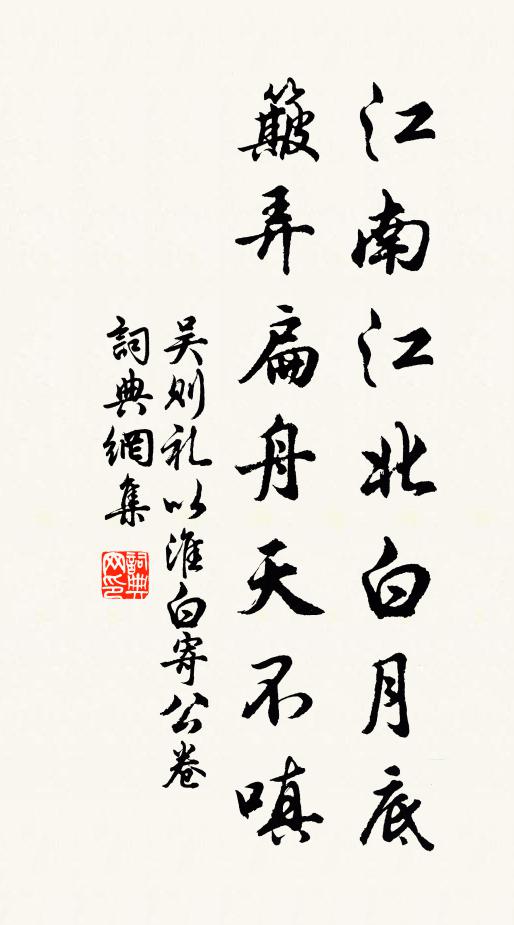 江南江北白月底
簸弄扁舟天不嗔
吴则礼以淮白寄公卷
詞典網集
詞典网印